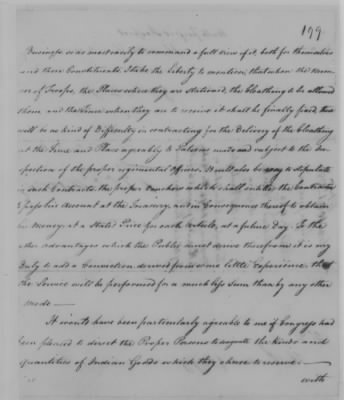 179.
Business so as most easily to command a full view of it, both for themselves
and their Constituents. I take the Liberty to mention, that when the Num
ber of Troops, the Places where they are stationed, the Cloathing to be allowed
them and the Time when they are to receive it shall be finally fixed, there
will be no kind of Difficulty in contracting for the Delivery of the Cloathing
at the Time and Place agreeably to Patterns made and subject to the Ins
pection of the proper regimental Officer. It will also be easy to stipulate
in such Contracts the proper Vouchers which shall entitle the Contractor
to pass his Account at the Treasury, and in Consequence thereof to obtain
his Money at a stated Price for each Article, at a future Day. To the
other advantages which the Public must derive therefrom it is my
Duty to add a Conviction derived from some little Experience that
the Service will be performed for a much less Sum than by any other
Mode.
It would have been particularly agreeable to me if Congress had
been pleased to direct the Proper Persons to designate the kinds and
quantities of Indian Goods which they chuse to reserve
with